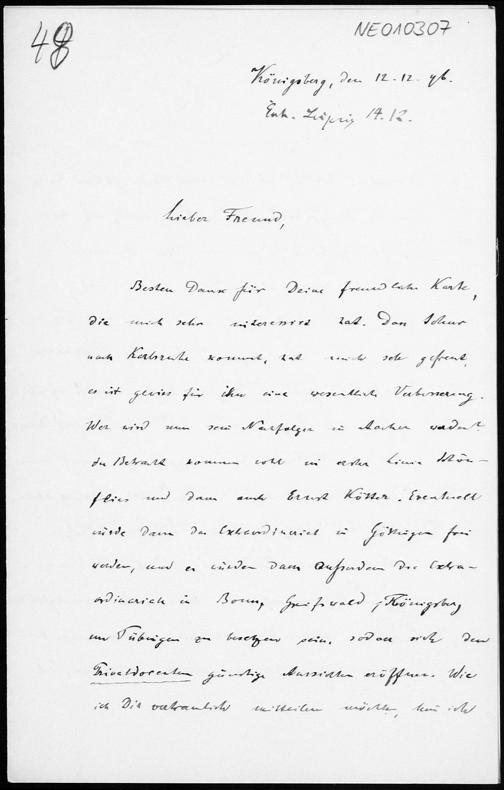 48
NE010307
Königsberg, den 12.12.96.
Erh. Leipzig 14.12.
Lieber Freund,
Besten Dank für Deine freundliche Karte,
die mich sehr interessirt hat. Dass Schur
nach Karlsruhe kommt, hat mich sehr gefreut,
es ist gewiss für ihn eine wesentliche Verbesserung.
Wer wird nun sein Nachfolger in Aachen werden?
In Betracht kommen wohl in erster Linie Schön-
flies und dann auch Ernst Kötter. Eventuell
würde dann das Extraordinariat in Göttingen frei
werden, und es würden dann ausserdem die Extra-
ordinariate in Bonn, Greifswald, Königsberg
und Tübingen zu besetzen sein, sodass sich den
Privatdocenten günstige Aussichten eröffnen. Wie
ich Dir vertraulich mittheilen möchte, bin ich